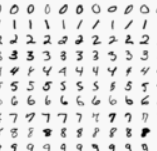 0 0 0 0 0 0 0 0 0 0
1 1 1 1 1 1 1 1 1 1
2 2 2 2 2 2 2 2 2 2
3 3 3 3 3 3 3 3 3 3
4 4 4 4 4 4 4 4 4 4
5 5 5 5 5 5 5 5 5 5
6 6 6 6 6 6 6 6 6 6
7 7 7 7 7 7 7 7 7 7
8 8 8 8 8 8 8 8 8
9 9 9 9 9 9 9 9 9 9